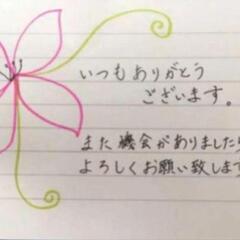 いつもありがとう
ございます。
また機会がありましたら
よろしくお願い致します